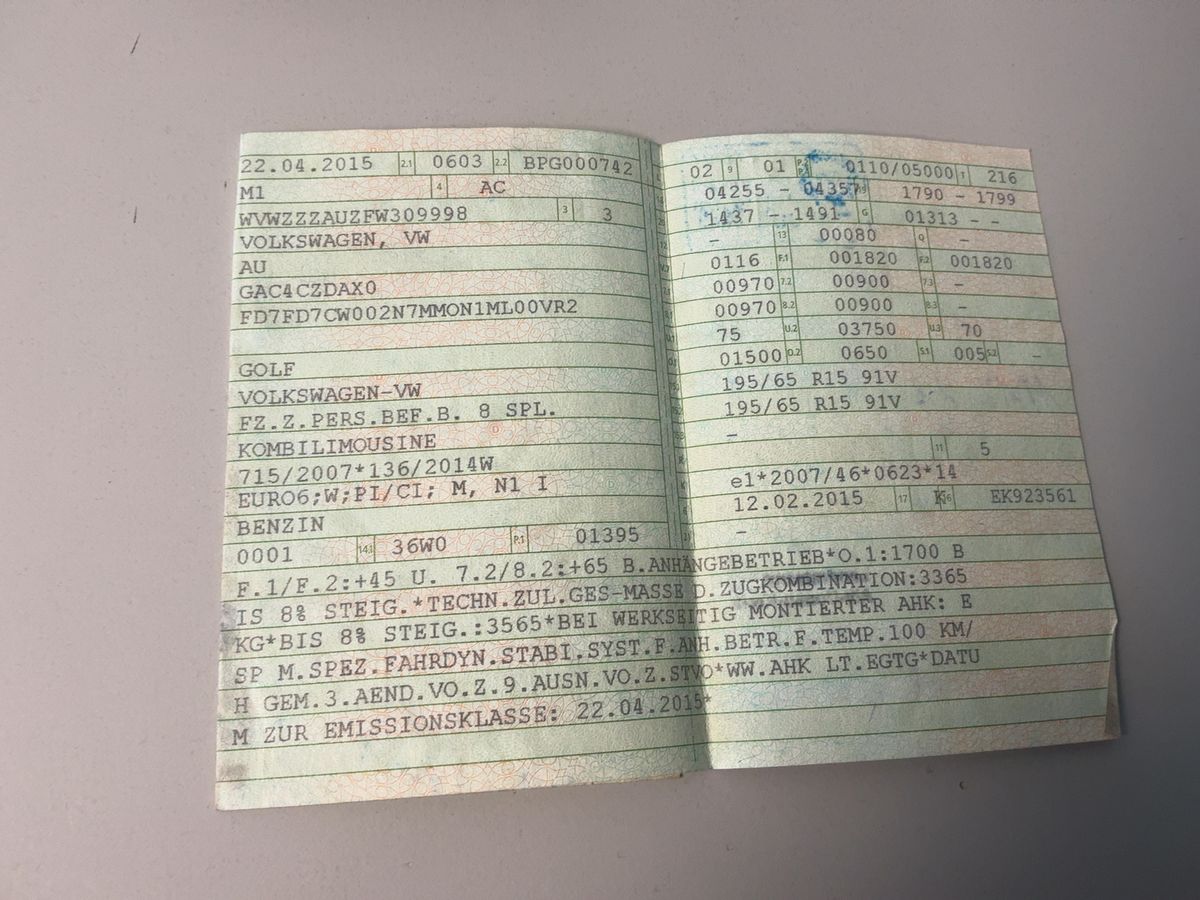 22.04.2015 2.1 0603 2.2 BPG000742
M1 4 AC
WVWZZZAUZFW309998 3 3
VOLKSWAGEN, VW
AU
GAC4CZDAX0
FD7FD7CW002N7MMON1ML00VR2
GOLF
VOLKSWAGEN-VW
FZ.Z.PERS.BEF.B. 8 SPL.
KOMBILIMOUSINE
715/2007*136/2014W
EURO6;W;PI/CI; M, N1 I
BENZIN
0001 14.1 36W0 P.1 01395
02 9 01 0110/05000 T 216
04255 - 04357 1790 - 1799
1437 - 1491 G 01313 - -
- 13 00080 Q -
0116 F.1 001820 F.2 001820
00970 7.2 00900 7.3 -
00970 8.2 00900 8.3 -
75 U.2 03750 U.3 70
01500 O.2 0650 S.1 005 S.2 -
195/65 R15 91V
195/65 R15 91V
-
11 5
e1*2007/46*0623*14
12.02.2015 17 K 16 EK923561
-
F.1/F.2:+45 U. 7.2/8.2:+65 B.ANHÄNGEBETRIEB*O.1:1700 B
IS 8% STEIG.*TECHN.ZUL.GES-MASSE D.ZUGKOMBINATION:3365
KG*BIS 8% STEIG.:3565*BEI WERKSEITIG MONTIERTER AHK: E
SP M.SPEZ.FAHRDYN.STABI.SYST.F.ANH.BETR.F.TEMP.100 KM/
H GEM.3.AEND.VO.Z.9.AUSN.VO.Z.STVO*WW.AHK LT.EGTG*DATU
M ZUR EMISSIONSKLASSE: 22.04.2015*